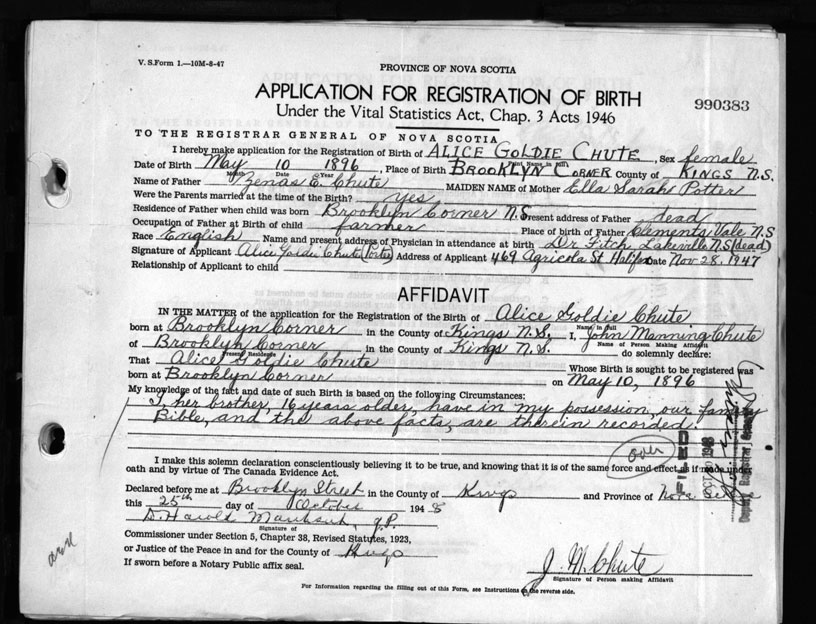 V. S. Form 1.—10M-8-47
PROVINCE OF NOVA SCOTIA
APPLICATION FOR REGISTRATION OF BIRTH
990383
Under the Vital Statistics Act, Chap. 3 Acts 1946
TO THE REGISTRAR GENERAL OF NOVA SCOTIA
I hereby make application for the Registration of Birth of ALICE GOLDIE CHUTE, Sex female
Print Name in full
Date of Birth May 10 1896, Place of Birth BROOKLYN CORNER County of KINGS N.S.
Month Date Year
Name of Father Zenas E. Chute MAIDEN NAME of Mother Ella Sarah Potter
Were the Parents married at the time of the Birth? yes
Residence of Father when child was born Brooklyn Corner N.S. Present address of Father dead
Occupation of Father at Birth of child farmer Place of birth of Father Clements Vale N.S
Race English Name and present address of Physician in attendance at birth Dr Fitch, Lakeville N.S (dead)
Signature of Applicant Alice Goldie Chute (Porter) Address of Applicant 469 Agricola St Halifax Date Nov 28. 1947
Relationship of Applicant to child
AFFIDAVIT
IN THE MATTER of the application for the Registration of the Birth of Alice Goldie Chute
Name in full
born at Brooklyn Corner in the County of Kings N.S. I, John Manning Chute
Name of Person Making Affidavit
of Brooklyn Corner in the County of Kings N.S. do solemnly declare:
Present Residence
That Alice Goldie Chute Whose Birth is sought to be registered was
born at Brooklyn Corner on May 10, 1896
My knowledge of the fact and date of such Birth is based on the following Circumstances:
I, her brother, 16 years older, have in my possession, our family
Bible, and the above facts, are therein recorded.
over
FILED
I make this solemn declaration conscientiously believing it to be true, and knowing that it is of the same force and effect as if made under
oath and by virtue of The Canada Evidence Act.
Declared before me at Brooklyn Street in the County of Kings and Province of Nova Scotia
this 25th day of October 1948
D. Harold J.P.
Signature of
Commissioner under Section 5, Chapter 38, Revised Statutes, 1923,
or Justice of the Peace in and for the County of Kings
If sworn before a Notary Public affix seal.
J. M. Chute
Signature of Person making Affidavit
For Information regarding the filling out of this Form, see Instructions on the reverse side.